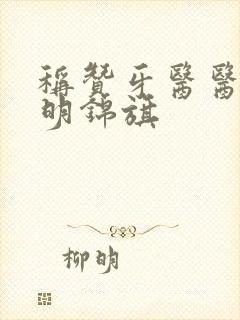 稱贊牙醫醫
明錦旗
柳明